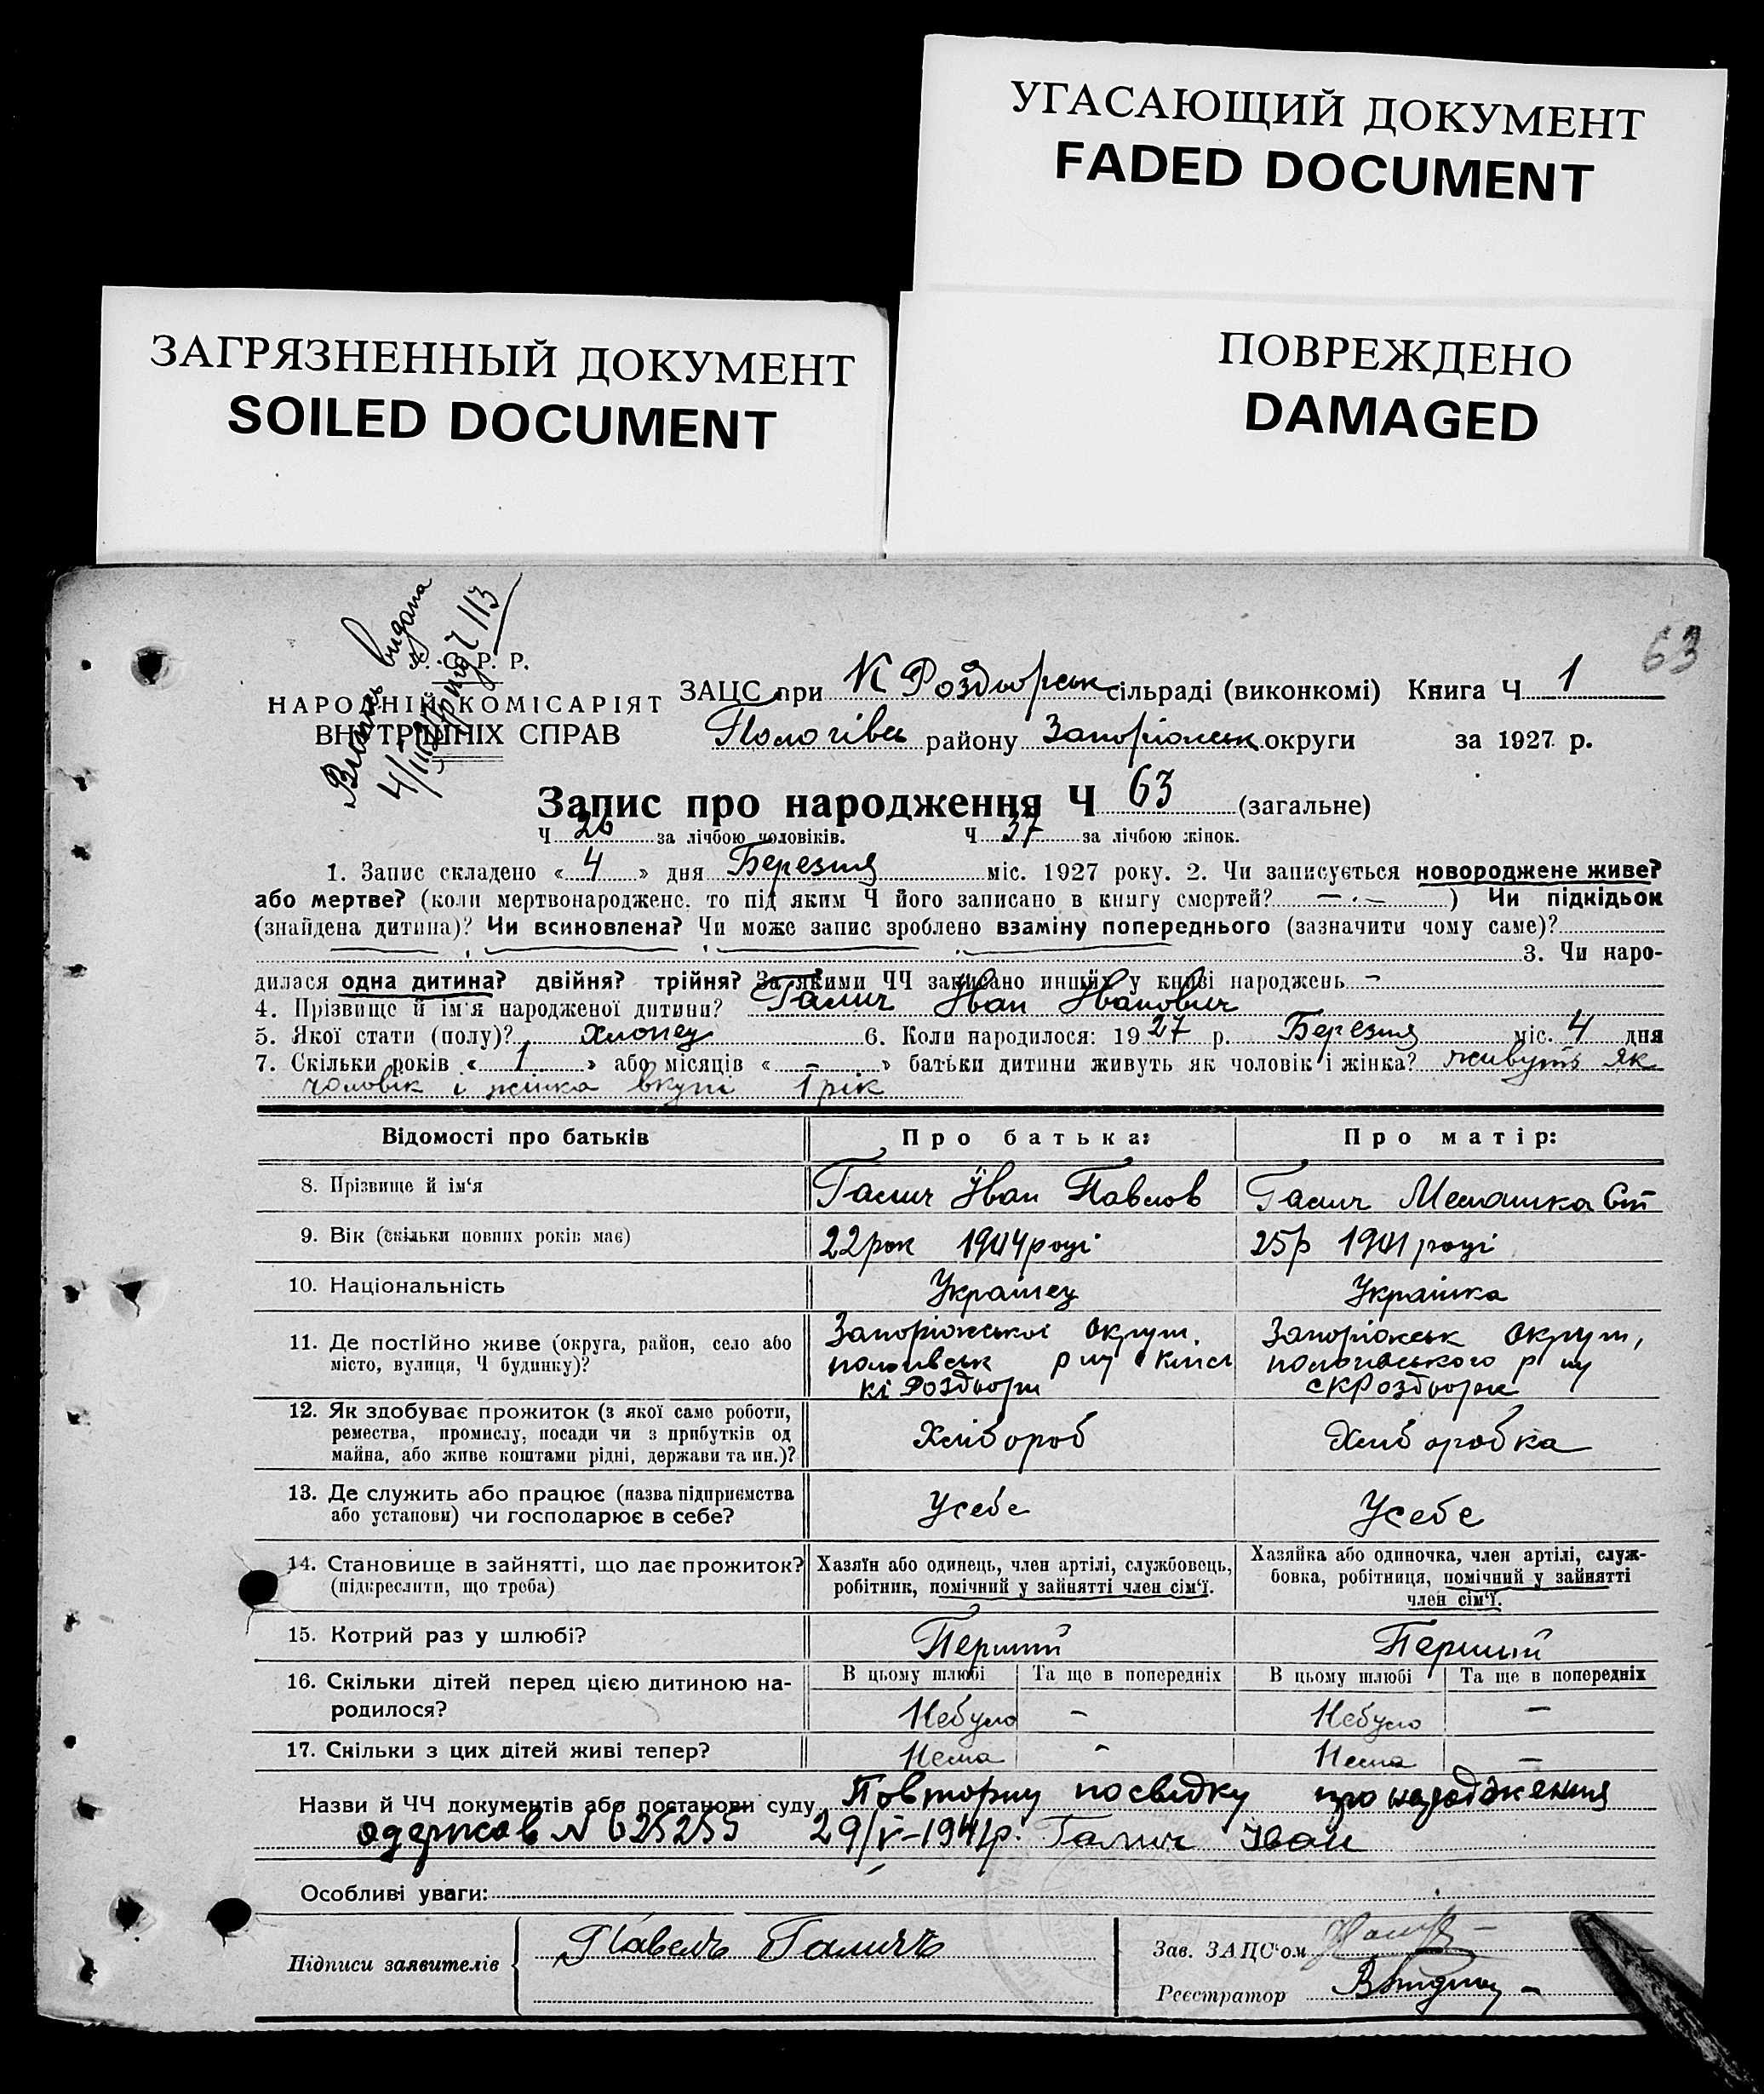 УГАСАЮЩИЙ ДОКУМЕНТ
FADED DOCUMENT
ЗАГРЯЗНЕННЫЙ ДОКУМЕНТ
SOILED DOCUMENT
ПОВРЕЖДЕНО
DAMAGED
63
видана
Ч 113
Р. Р.
НАРОДНІЙ КОМІСАРІЯТ
ВНУТРІШНІХ СПРАВ
ЗАЦС при К Роздорськ сільраді (виконкомі) Книга Ч 1
Пологівск району Запоріжськ округи за 1927 р.
Запис про народження Ч 63 (загальне)
Ч 26 за лічбою чоловіків. Ч 37 за лічбою жінок.
1. Запис складено « 4 » дня Березня міс. 1927 року. 2. Чи записується новороджене живе?
або мертве? (коли мертвонароджене, то під яким Ч його записано в книгу смертей? — · — ) Чи підкідьок
(знайдена дитина)? Чи всиновлена? Чи може запис зроблено взаміну попереднього (зазначити чому саме)?
3. Чи наро-
дилася одна дитина? двійня? трійня? За якими ЧЧ записано инших у книзі народжень –
4. Прізвище й ім'я народженої дитини? Галич Іван Іванович
5. Якої стати (полу)? Хлопец 6. Коли народилося: 1927 р. Березня міс. 4 дня
7. Скільки років « 1 » або місяців « – » батьки дитини живуть як чоловік і жінка? живуть як
чоловік і жінка вкупі 1 рік
Відомості про батьків Про батька: Про матір:
8. Прізвище й ім'я Галич Іван Павлов Галич Мелашка Ст
9. Вік (скільки повних років має) 22 рок 1904 році 25 р 1901 році
10. Національність Українец Українка
11. Де постійно живе (округа, район, село або Запоріжської округи, Запоріжськ округи,
місто, вулиця, Ч будинку)? пологівськ р ну пологівського р ну
кі Роздори
12. Як здобуває прожиток (з якої саме роботи,
ремества, промислу, посади чи з прибутків од Хлібороб Хліборобка
майна, або живе коштами рідні, держави та ин.)?
13. Де служить або працює (назва підприємства Усебе Усебе
або установи) чи господарює в себе?
14. Становище в зайнятті, що дає прожиток? Хазяїн або одинець, член артілі, службовець, Хазяйка або одиночка, член артілі, служ-
(підкреслити, що треба) робітник, помічний у зайнятті член сім'ї. бовка, робітниця, помічний у зайнятті
член сім'ї.
15. Котрий раз у шлюбі? Перший Перший
16. Скільки дітей перед цією дитиною на- В цьому шлюбі Та ще в попередніх В цьому шлюбі Та ще в попередніх
родилося? Небуло – Небуло –
17. Скільки з цих дітей живі тепер? Нема - Нема –
Назви й ЧЧ документів або постанови суду Повторну посвідку про народження
одержав N 625255 29/V-1941р. Галич Іван
Особливі уваги:
Підписи заявителів Павелъ Галичъ
Зав. ЗАЦС'ом
Реєстратор